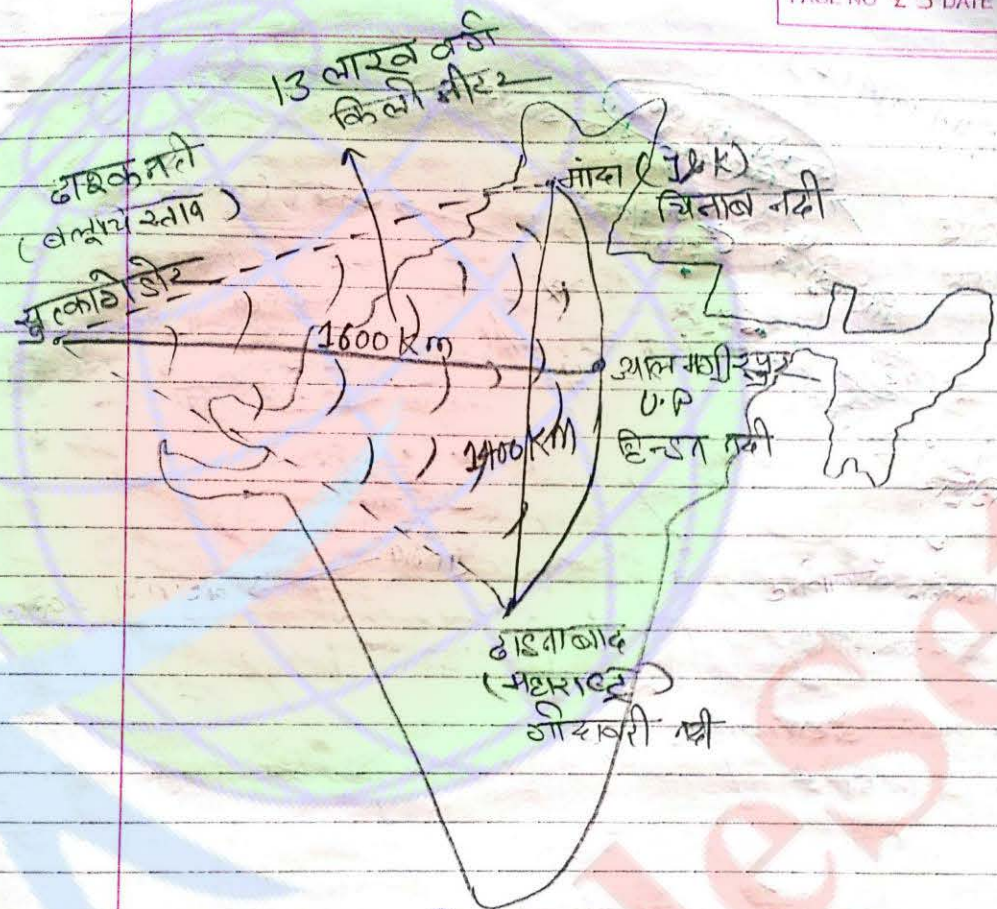 PAGE NO 23 DATE
13 लाख वर्ग
किलो मीटर
दाश्क नदी
(बलूचिस्तान)
सुत्कागेंडोर
मांदा (J&K)
चिनाब नदी
1600 Km
आलमगीरपुर
U.P
हिन्डन नदी
1400 Km
दाइमाबाद
(महाराष्ट्र)
गोदावरी नदी